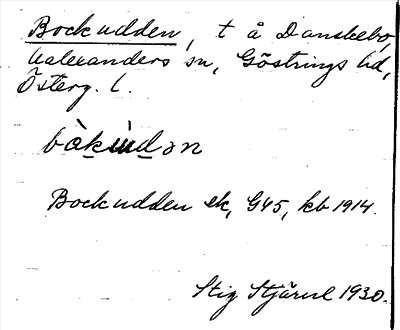 Bockudden, t å Danskebo,
Valexanders sn, Göstrings hd,
Österg. l.
bòkùdən
Bockudden ek, G45, kb 1914.
Stig Stjärnl 1930.